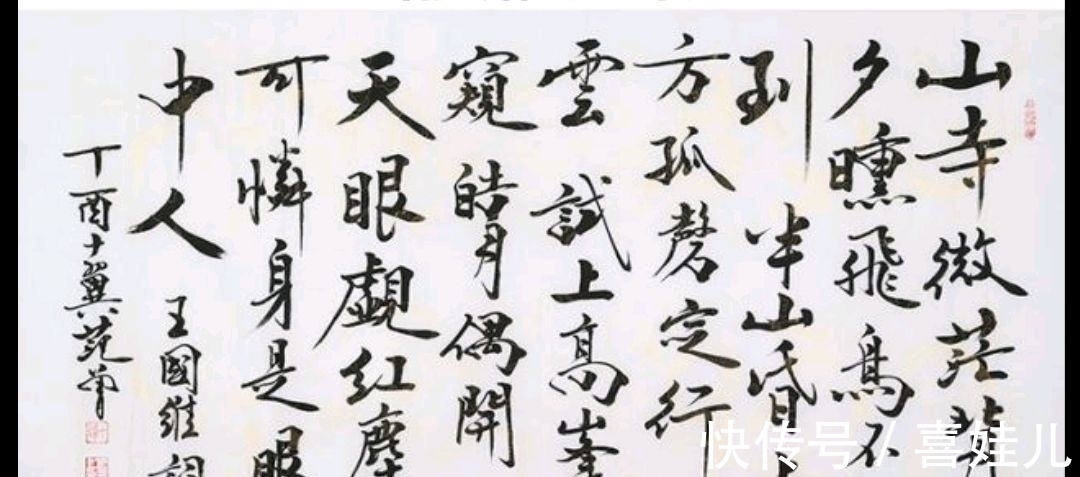 山寺微茫背
夕曛飛鳥不
到半山昏
方孤磬定行
雲試上高峯
窺皓月偶開
天眼覷紅塵
可憐身是眼
中人 王國維詞
丁酉十翼范曾
快传号 / 喜娃儿